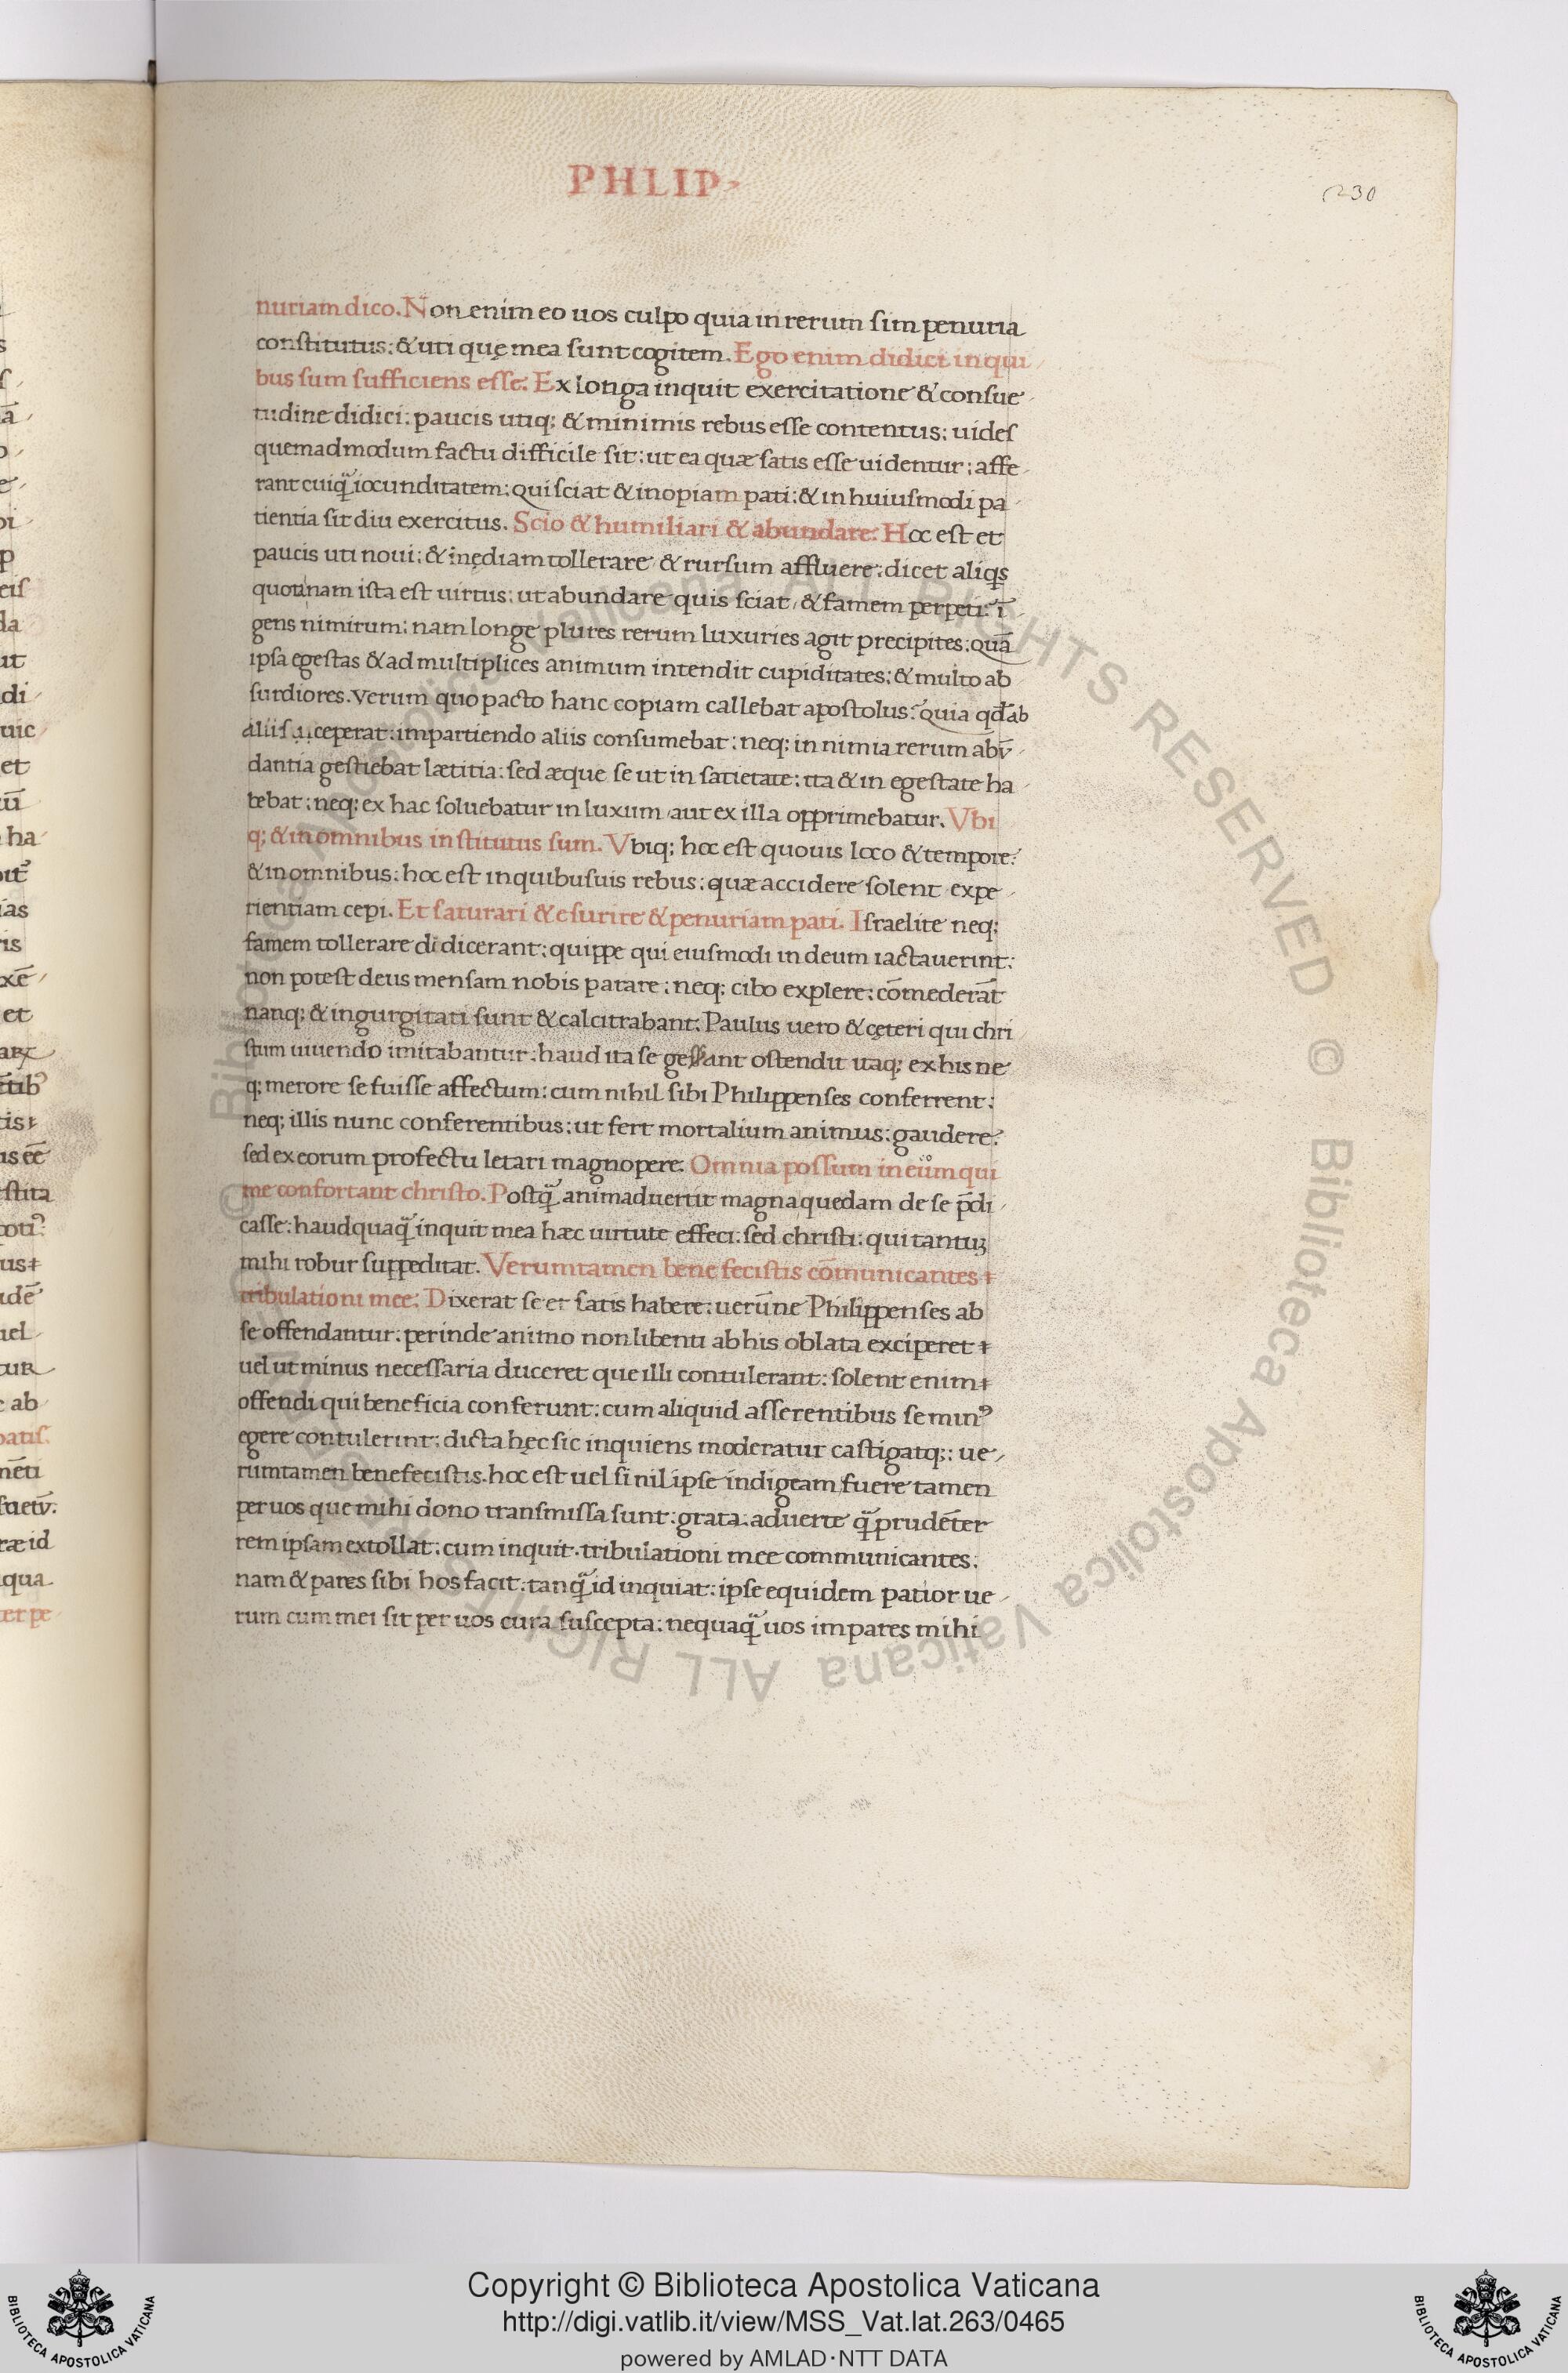 PHLIP
230
nuriam dico. Non enim eo uos culpo quia in rerum sim penuria
constitutus: & uti quę mea sunt cogitem. Ego enim didici in qui
bus sum sufficiens esse. Ex longa inquit exercitatione & consue
tudine didici: paucis utiq; & minimis rebus esse contentus: uides
quemadmodum factu difficile sit: ut ea quæ satis esse uidentur: affe
rant cuiq̃ iocunditatem: qui sciat & inopiam pati: & in huiusmodi pa
tientia sit diu exercitus. Scio & humiliari & abundare. Hoc est et
paucis uti noui: & inędiam tollerare & rursum affluere: dicet aliqs
quoninam ista est uirtus: ut abundare quis sciat, & famem perpeti: ĩ
gens nimirum: nam longe plures rerum luxuries agit precipites: quã
ipsa egestas & ad multiplices animum intendit cupiditates: & multo ab
surdiores. Verum quo pacto hanc copiam callebat apostolus? quia qđ ab
aliis susceperat: impartiendo aliis consumebat: neq; in nimia rerum abũ
dantia gestiebat lætitia: sed æque se ut in satietate: ita & in egestate ha
bebat: neq; ex hac soluebatur in luxum, aut ex illa opprimebatur. Vbi
q; & in omnibus institutus sum. Vbiq; hoc est quouis loco & tempore:
& in omnibus: hoc est in quibusuis rebus: quæ accidere solent expe
rientiam cepi. Et saturari & esurire & penuriam pati. Israelite neq;
famem tollerare didicerant: quippe qui eiusmodi in deum iactauerint:
non potest deus mensam nobis parare: neq; cibo explere: cõmederãt
nanq; & ingurgitati sunt & calcitrabant. Paulus uero & cęteri qui chri
stum uiuendo imitabantur: haud ita se gessant ostendit itaq; ex his ne
q; merore se fuisse affectum: cum nihil sibi Philippenses conferrent:
neq; illis nunc conferentibus: ut fert mortalium animus: gaudere:
sed ex eorum profectu letari magnopere. Omnia possum in eũm qui
me confortant christo. Postq̃ animaduertit magna quedam de se p̃di
casse: haudquaq̃ inquit mea hæc uirtute effeci: sed christi: qui tantuʒ
mihi robur suppeditat. Verumtamen bene fecistis cõmunicantes
tribulationi mee. Dixerat se et satis habere: uerũ ne Philippenses ab
se offendantur: perinde animo non libenti ab his oblata exciperet
uel ut minus necessaria duceret que illi contulerant: solent enim
offendi qui beneficia conferunt: cum aliquid asserentibus se min9
egere contulerint: dicta hęc sic inquiens moderatur castigatq;: ue
rumtamen benefecistis. hoc est uel si nil ipse indigeam, fuere tamen
per uos que mihi dono transmissa sunt: grata. aduerte q̃ prudẽter
rem ipsam extollat: cum inquit. tribulationi mee communicantes.
nam & pares sibi hos facit: tanq̃ id inquiat: ipse equidem patior ue
rum cum mei sit per uos cura suscepta: nequaq̃ uos impares mihi
© Biblioteca Apostolica Vaticana ALL RIGHTS RESERVED © Biblioteca Apostolica Vaticana ALL RIGHTS RESERVED
Copyright © Biblioteca Apostolica Vaticana
http://digi.vatlib.it/view/MSS_Vat.lat.263/0465
powered by AMLAD·NTT DATA
BIBLIOTECA APOSTOLICA VATICANA
BIBLIOTECA APOSTOLICA VATICANA